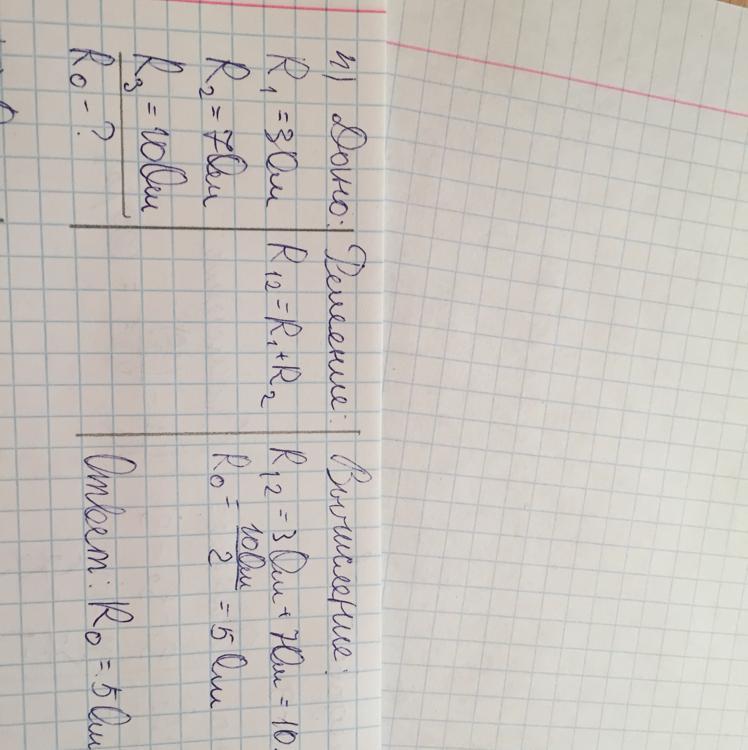 4) Дано:
R1 = 3 Ом
R2 = 7 Ом
R3 = 10 Ом
R0 - ?
Решение:
R12 = R1 + R2
Вычисление:
R12 = 3 Ом + 7 Ом = 10
R0 = 10 Ом / 2 = 5 Ом
Ответ: R0 = 5 Ом